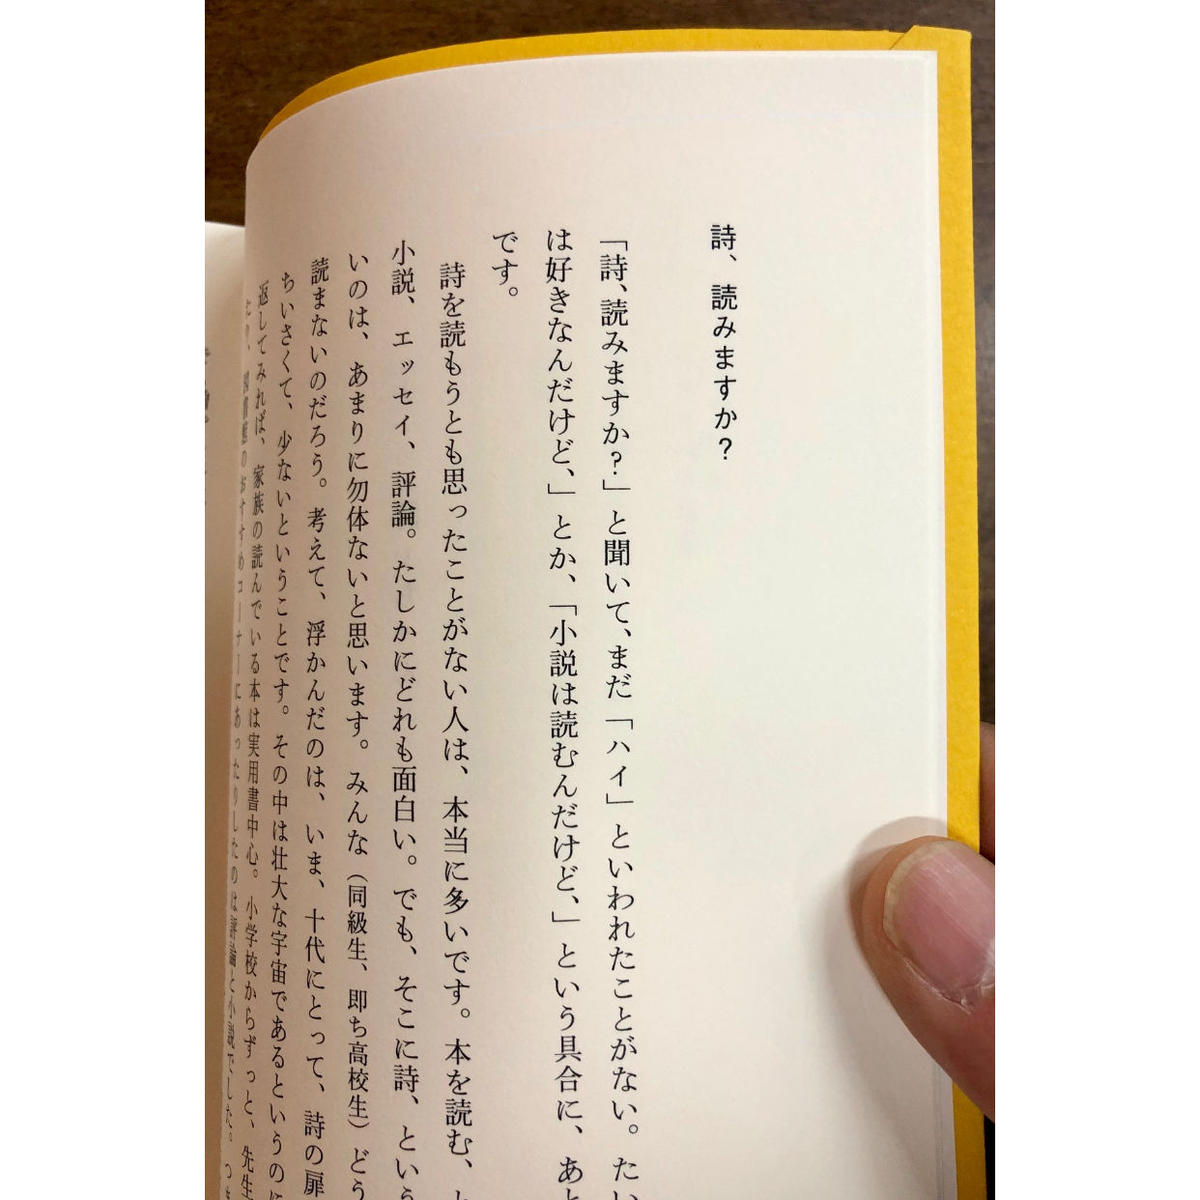 詩、読みますか？
「詩、読みますか？」と聞いて、まだ「ハイ」といわれたことがない。たい
は好きなんだけど、」とか、「小説は読むんだけど、」という具合に、あと
です。
詩を読もうとも思ったことがない人は、本当に多いです。本を読む、と
小説、エッセイ、評論。たしかにどれも面白い。でも、そこに詩、という
いのは、あまりに勿体ないと思います。みんな（同級生、即ち高校生）どう
読まないのだろう。考えて、浮かんだのは、いま、十代にとって、詩の扉
ちいさくて、少ないということです。その中は壮大な宇宙であるというのに
返してみれば、家族の読んでいる本は実用書中心。小学校からずっと、先生
たり、図書館のおすすめコーナーにあったりしたのは評論と小説でした。つま